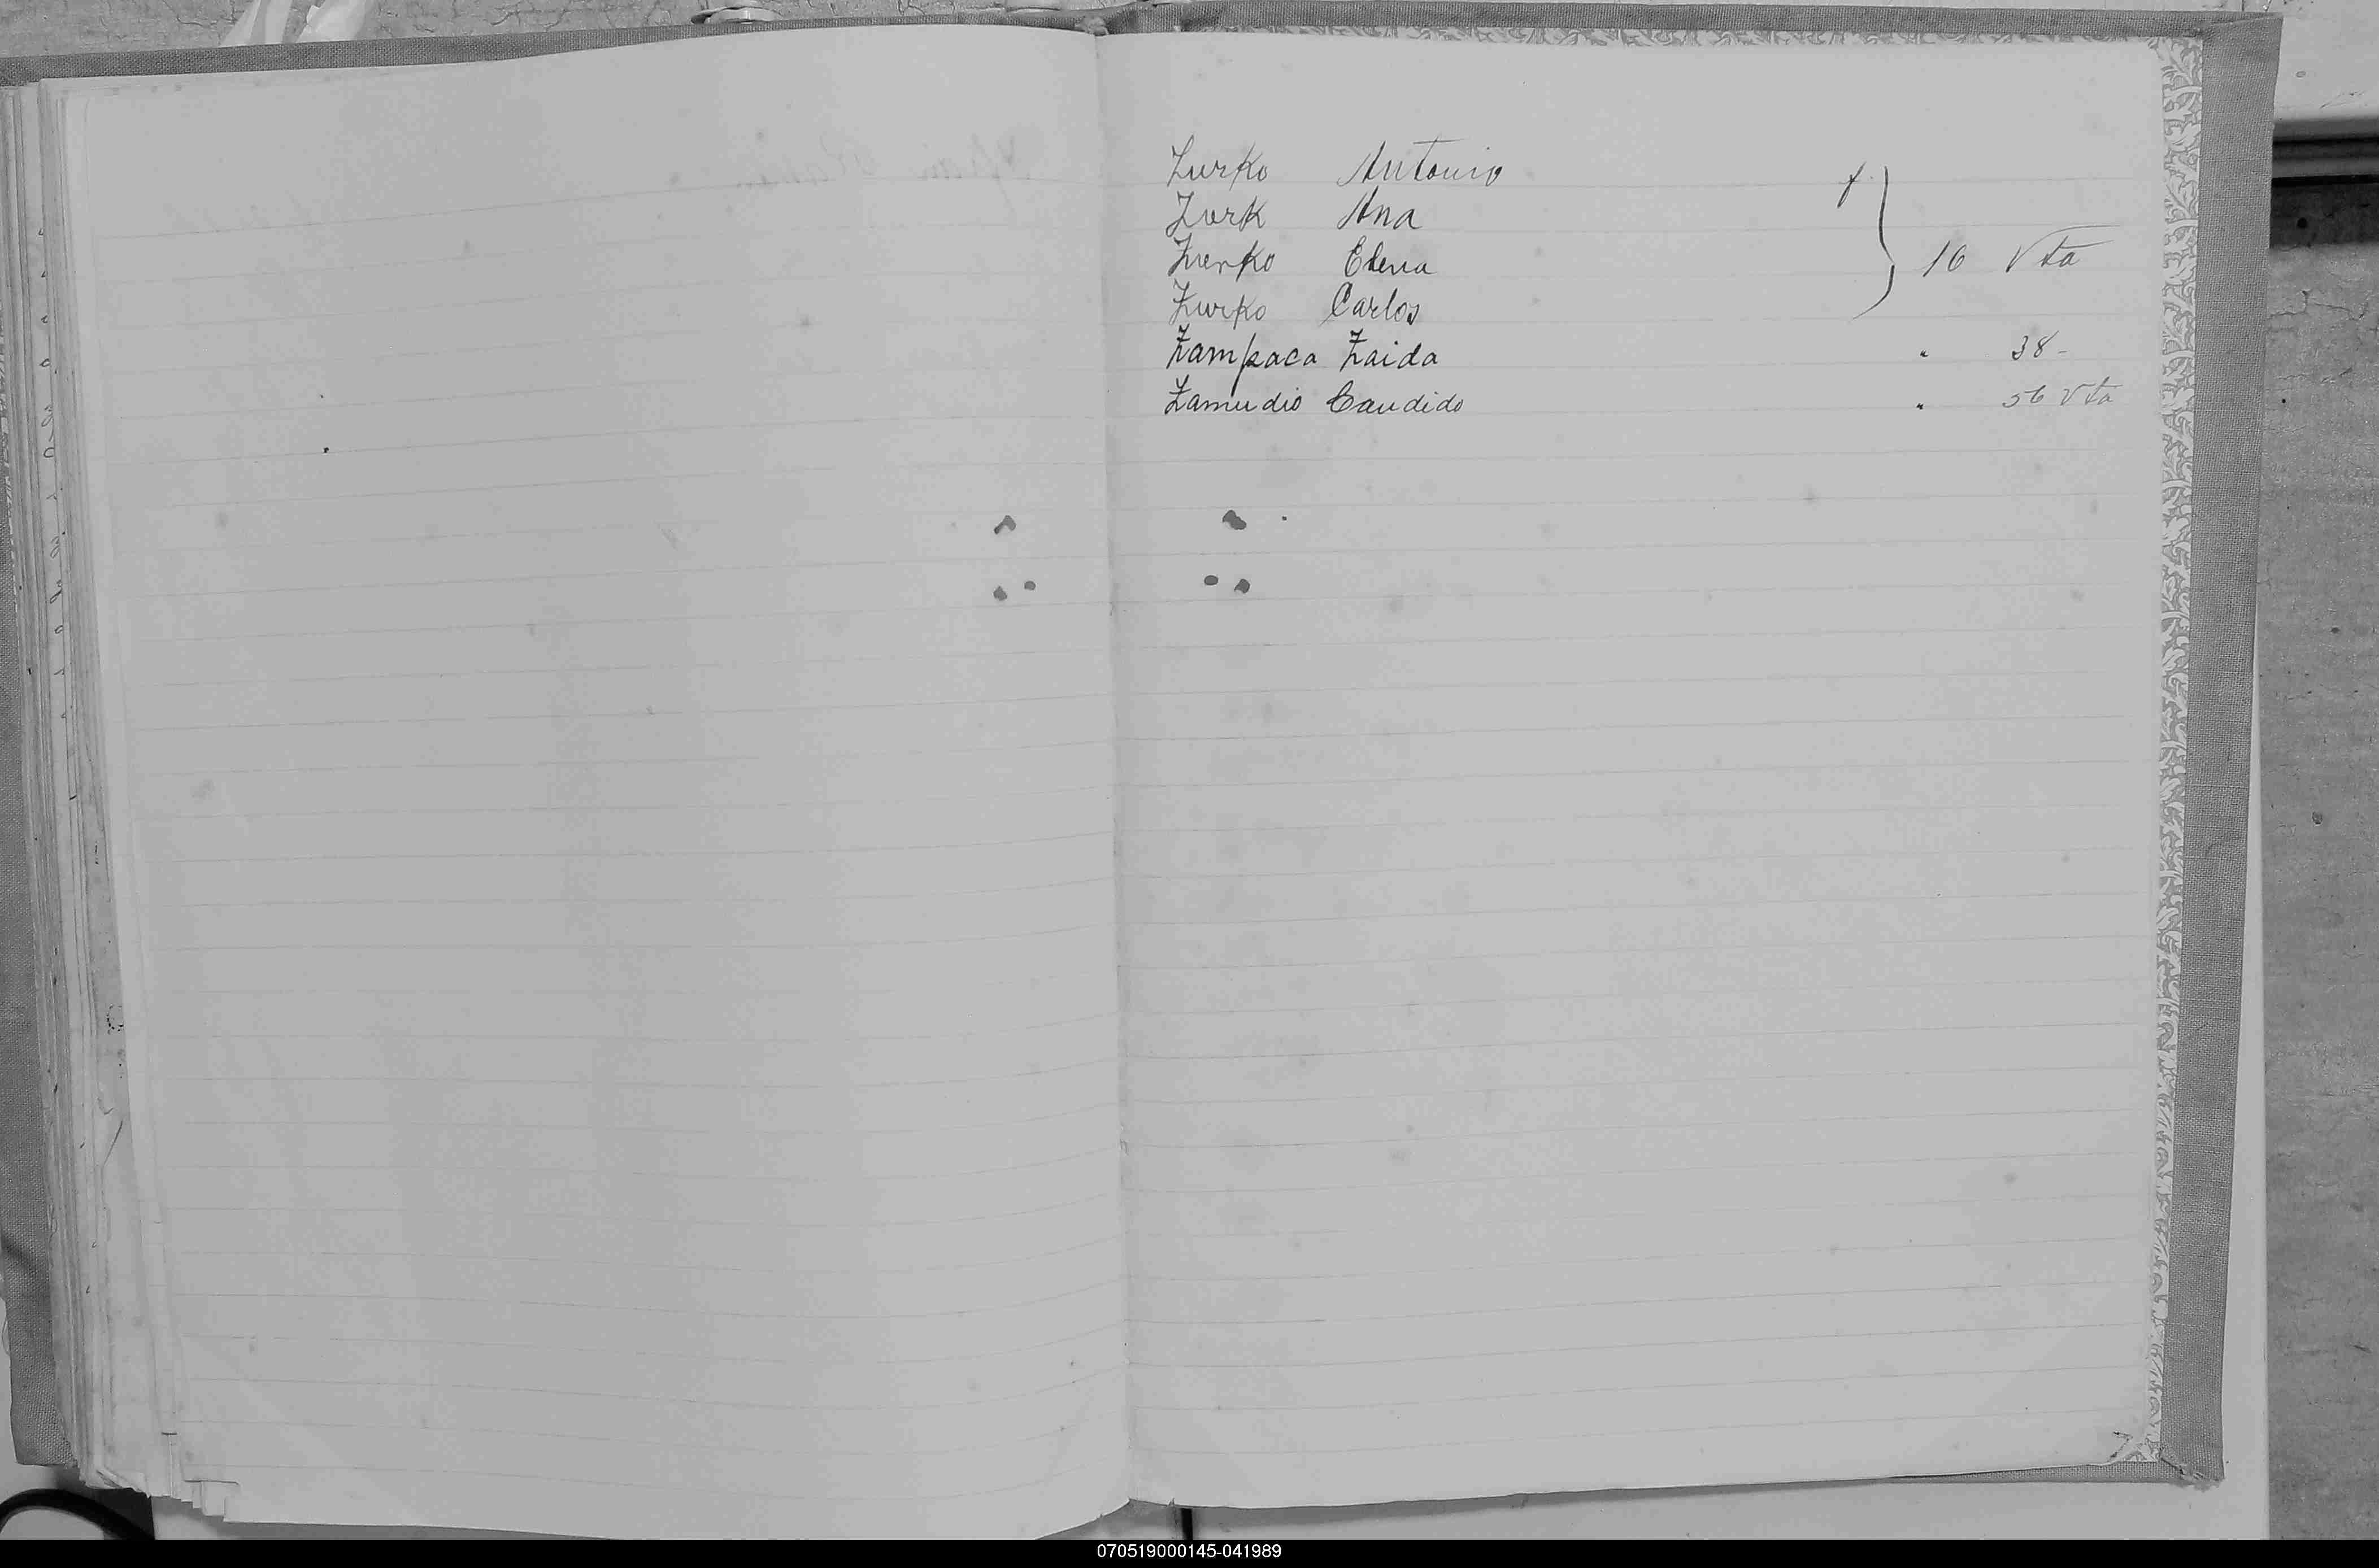 Zurko Antonio
Zurk Ana
Zurko Elena
Zurko Carlos
16 Vta
Zampaca Zaida " 38-
Zamudio Candido " 56 Vta
070519000145-041989